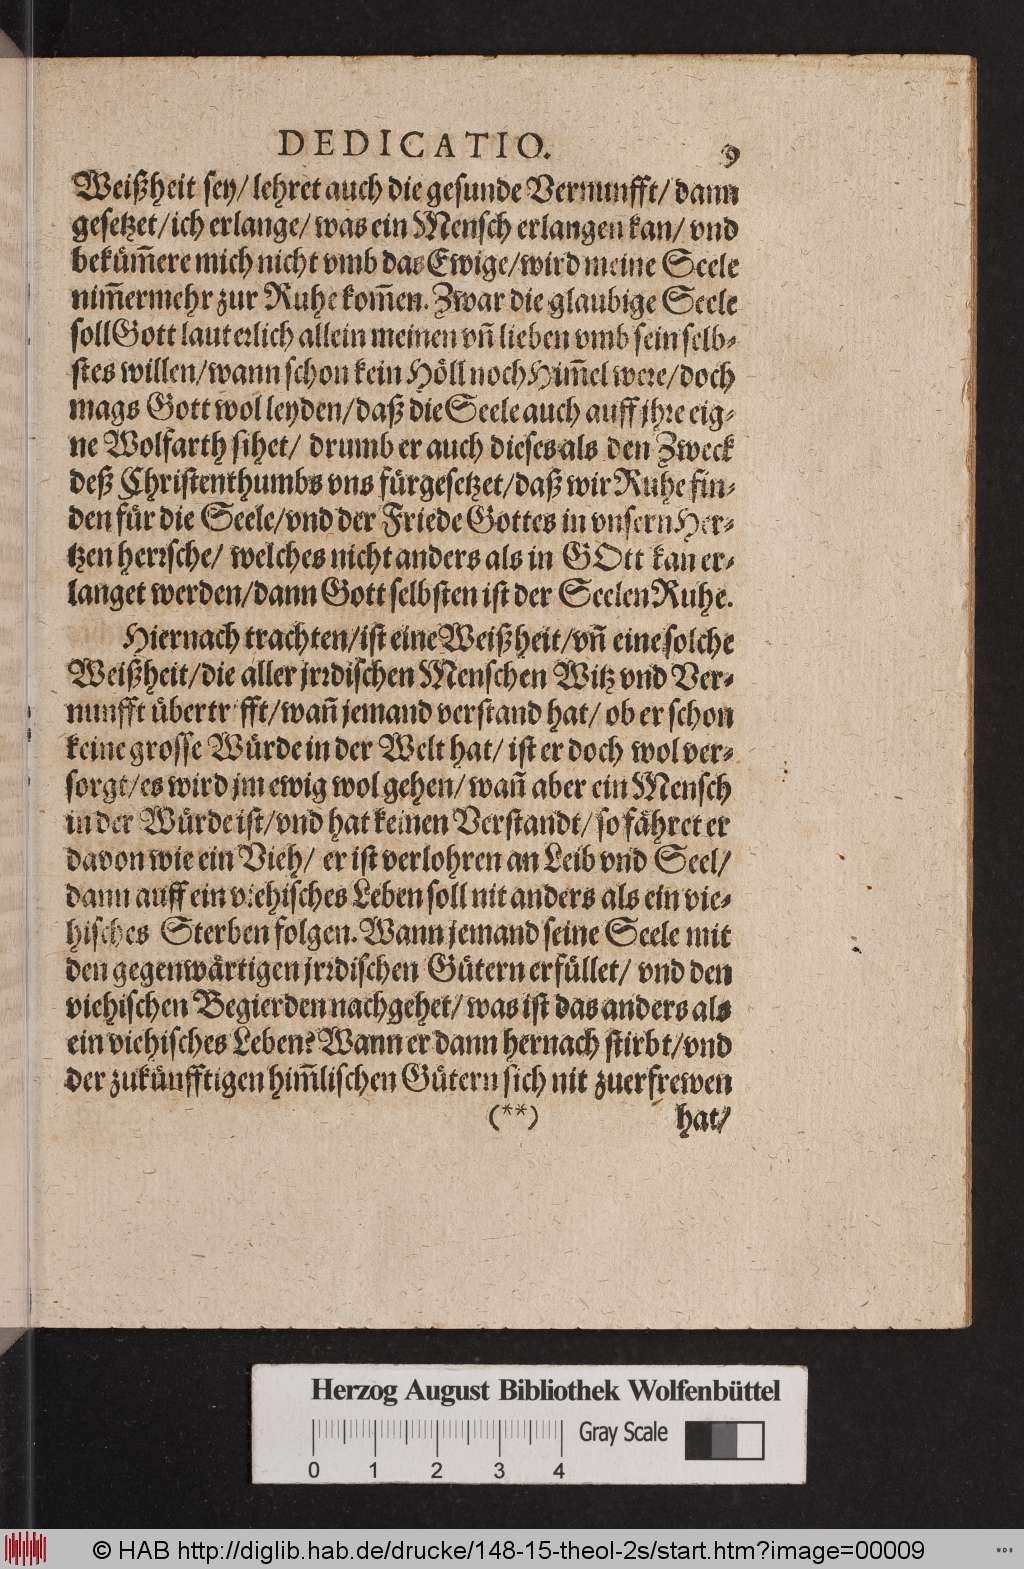 DEDICATIO. 9
Weißheit sey/ lehret auch die gesunde Vernunfft/ dann
gesetzet/ ich erlange/ was ein Mensch erlangen kan/ vnd
bekům̃ere mich nicht vmb das Ewige/ wird meine Seele
nim̃ermehr zur Ruhe kom̃en. Zwar die glaubige Seele
soll Gott lauterlich allein meinen vñ lieben vmb sein selb-
stes willen/ wann schon kein Höll noch Him̃el were/ doch
mags Gott wol leyden/ daß die Seele auch auff jhre eig-
ne Wolfarth sihet/ drumb er auch dieses als den Zweck
deß Christenthumbs vns fürgesetzet/ daß wir Ruhe fin-
den für die Seele/ vnd der Friede Gottes in vnsern Her-
tzen herrsche/ welches nicht anders als in GOtt kan er-
langet werden/ dann Gott selbsten ist der Seelen Ruhe.
Hiernach trachten/ ist eine Weißheit/ vñ eine solche
Weißheit/ die aller jrrdischen Menschen Witz vnd Ver-
nunfft übertrifft/ wañ jemand verstand hat/ ob er schon
keine grosse Würde in der Welt hat/ ist er doch wol ver-
sorgt/ es wird jm ewig wol gehen/ wañ aber ein Mensch
in der Würde ist/ vnd hat keinen Verstandt/ so fähret er
davon wie ein Vieh/ er ist verlohren an Leib vnd Seel/
dann auff ein viehisches Leben soll nit anders als ein vie-
hisches Sterben folgen. Wann jemand seine Seele mit
den gegenwärtigen jrrdischen Gütern erfüllet/ vnd den
viehischen Begierden nachgehet/ was ist das anders als
ein viehisches Leben? Wann er dann hernach stirbt/ vnd
der zukünfftigen him̃lischen Gütern sich nit zuerfrewen
(**) hat/
Herzog August Bibliothek Wolfenbüttel
Gray Scale
0 1 2 3 4
© HAB http://diglib.hab.de/drucke/148-15-theol-2s/start.htm?image=00009